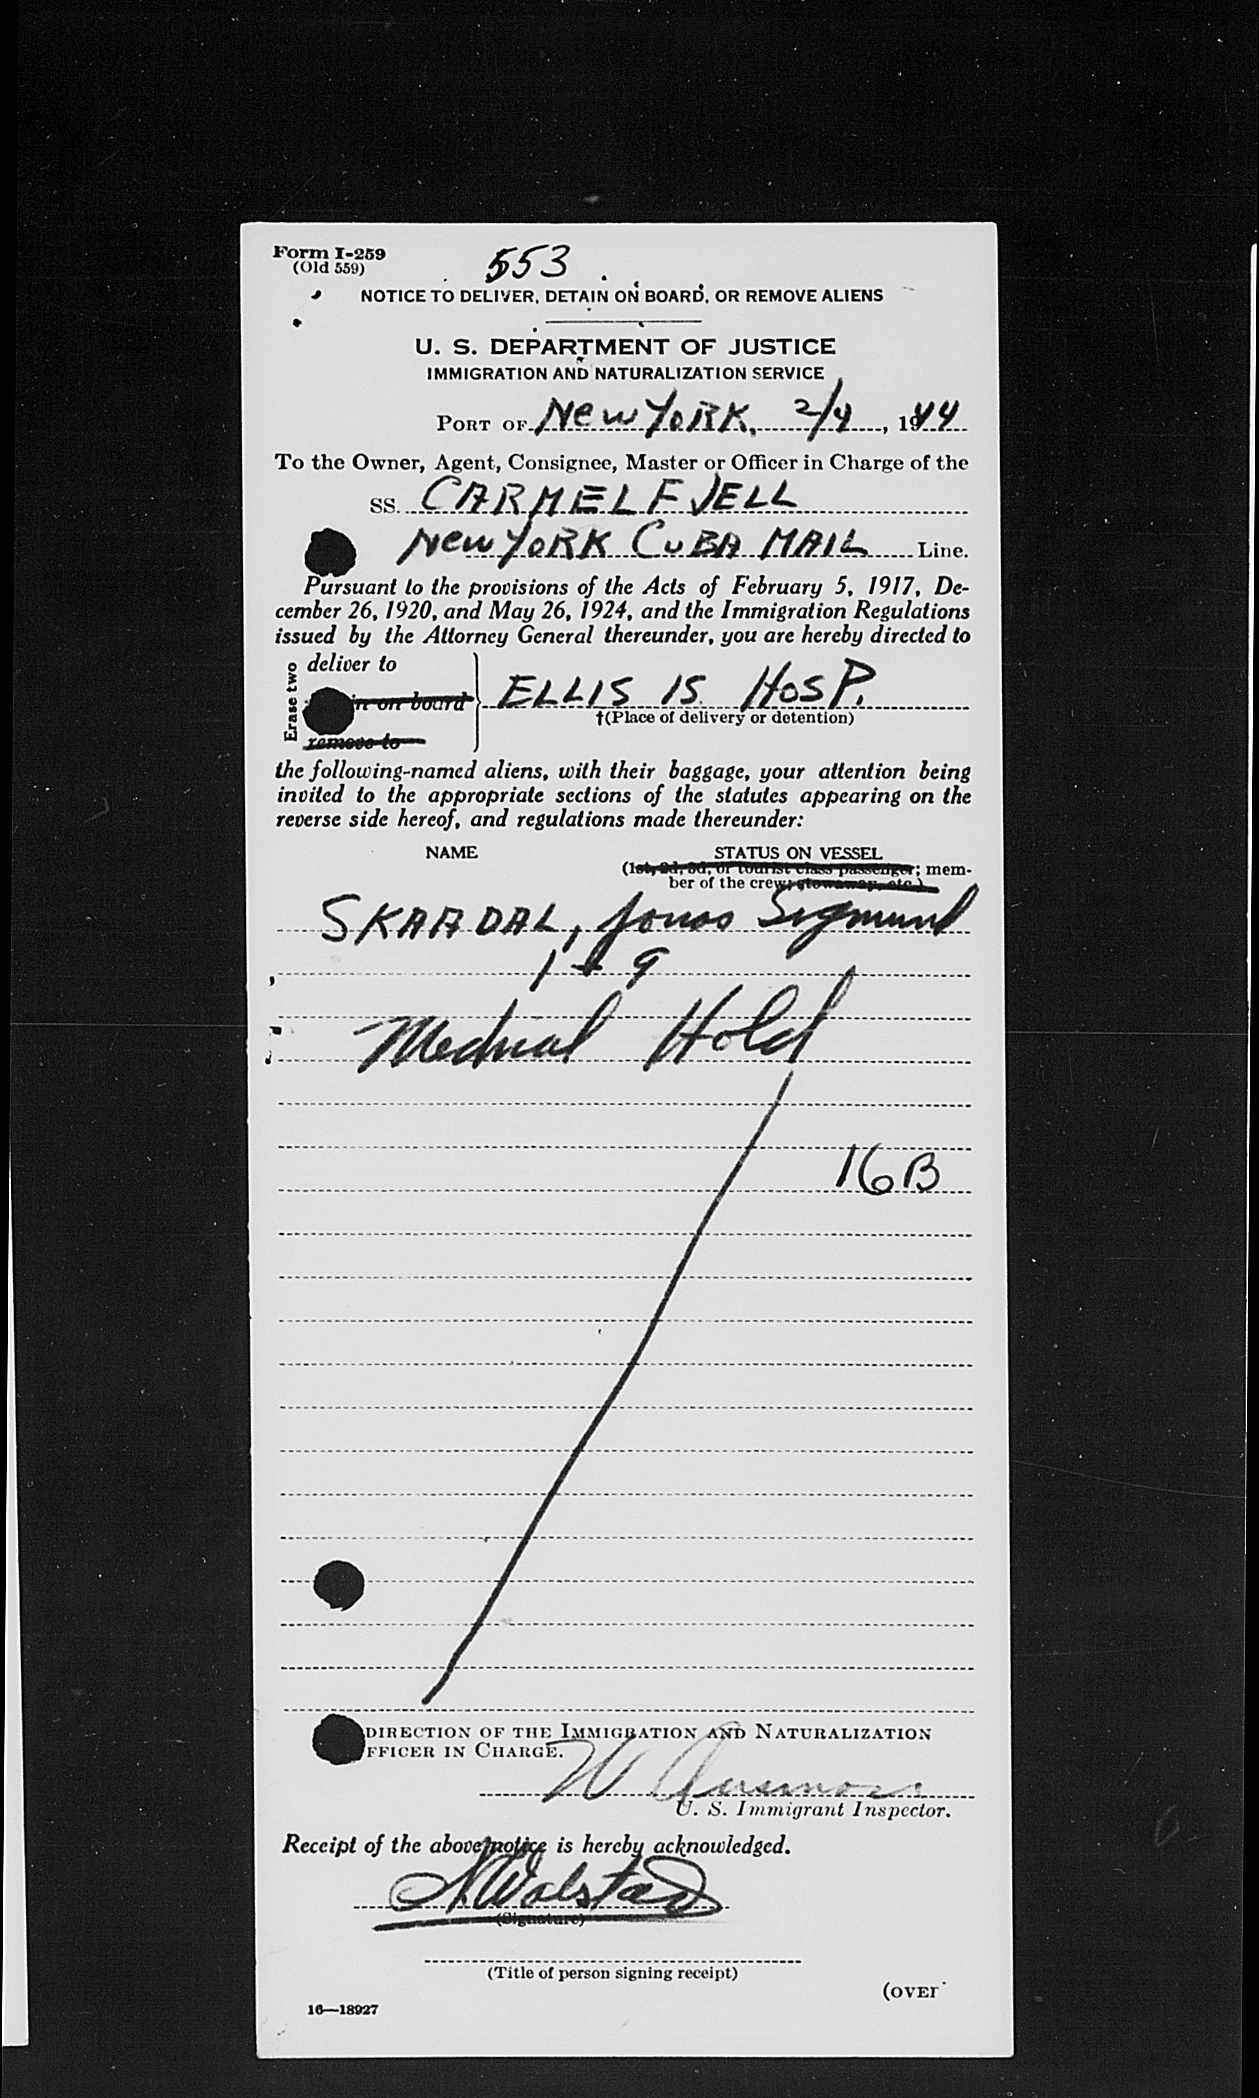 Form I-259
(Old 559)
553
NOTICE TO DELIVER, DETAIN ON BOARD, OR REMOVE ALIENS
U. S. DEPARTMENT OF JUSTICE
IMMIGRATION AND NATURALIZATION SERVICE
PORT OF New YORK, 2/4, 1944
To the Owner, Agent, Consignee, Master or Officer in Charge of the
SS. CARMELFJELL
New YORK CUBA MAIL Line.
Pursuant to the provisions of the Acts of February 5, 1917, De-
cember 26, 1920, and May 26, 1924, and the Immigration Regulations
issued by the Attorney General thereunder, you are hereby directed to
Erase two
deliver to
n on board
remove to
ELLIS IS. HOSP.
†(Place of delivery or detention)
the following-named aliens, with their baggage, your attention being
invited to the appropriate sections of the statutes appearing on the
reverse side hereof, and regulations made thereunder:
NAME STATUS ON VESSEL
(1st, 2d, 3d, or tourist class passenger; mem-
ber of the crew; stowaway, etc.)
SKAADAL, Jonas Sigmund
1 + 9
Medical Hold
16B
DIRECTION OF THE IMMIGRATION AND NATURALIZATION
FFICER IN CHARGE.
W
U. S. Immigrant Inspector.
Receipt of the above notice is hereby acknowledged.
Walstad
(Signature)
(Title of person signing receipt)
(OVER
16—18927